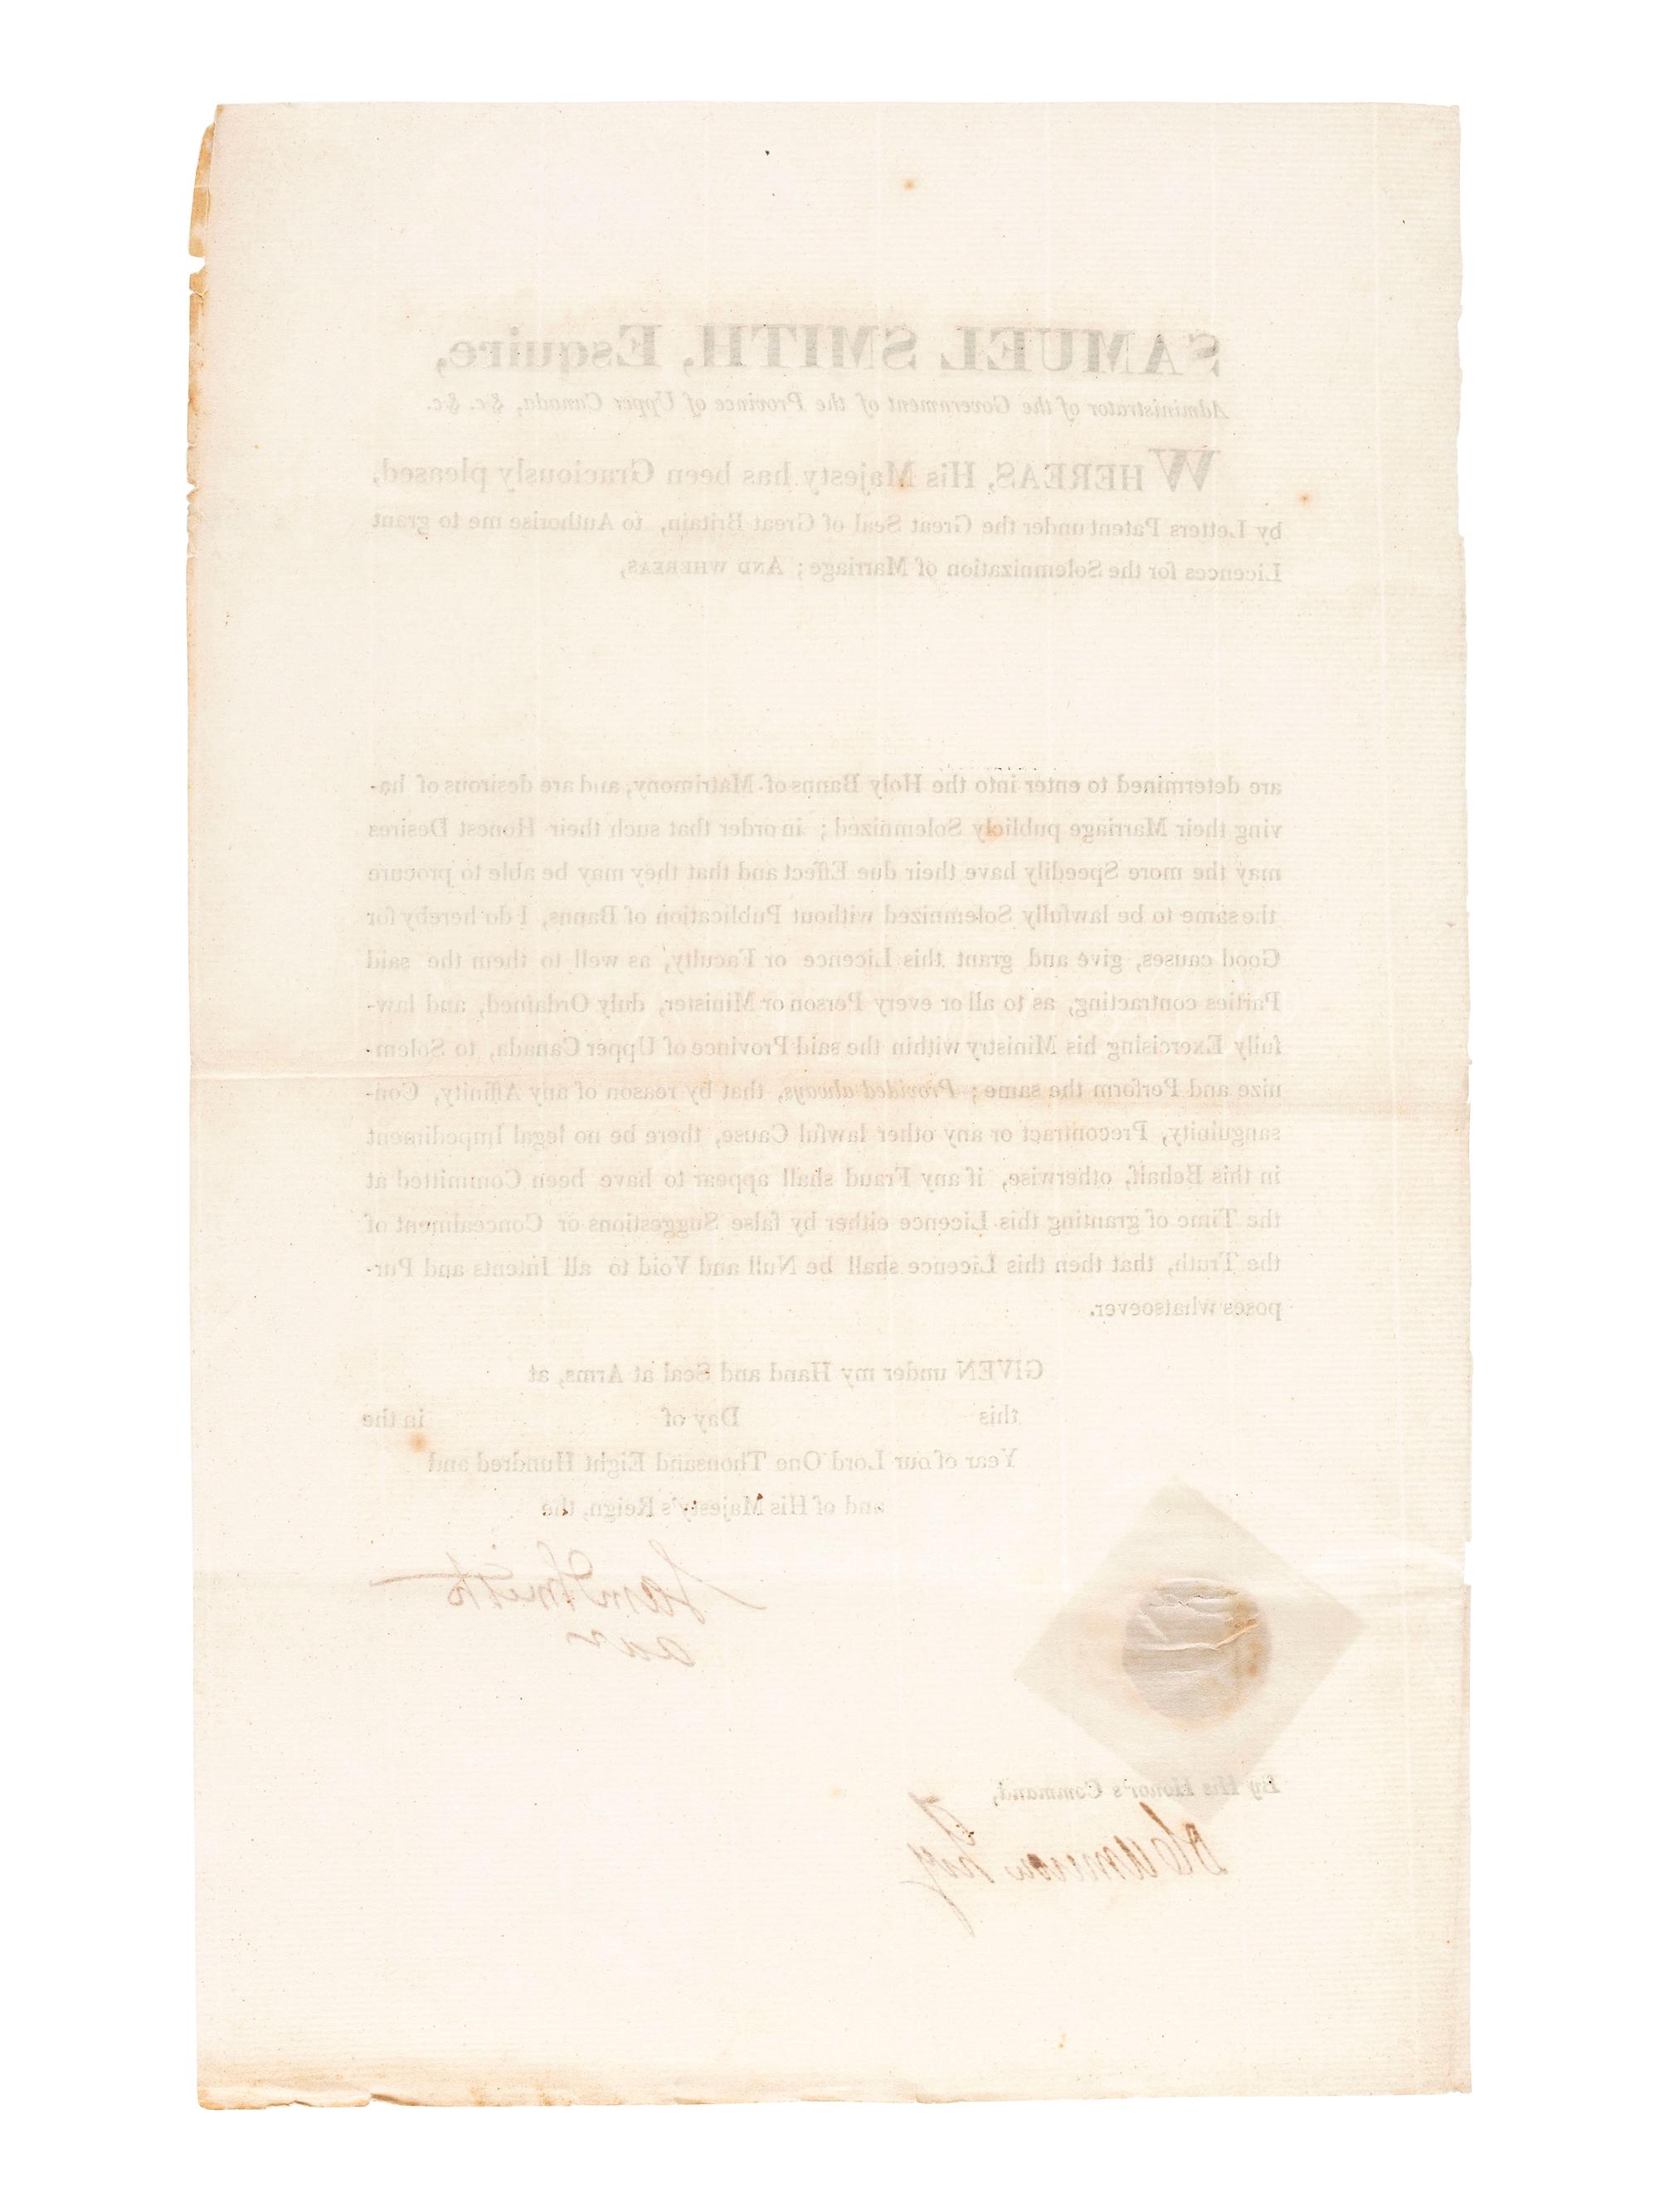 SAMUEL SMITH, Esquire,
Administrator of the Government of the Province of Upper Canada, &c. &c.
WHEREAS, His Majesty has been Graciously pleased,
by Letters Patent under the Great Seal of Great Britain, to Authorise me to grant
Licences for the Solemnization of Marriage; AND WHEREAS,
are determined to enter into the Holy Banns of Matrimony, and are desirous of ha-
ving their Marriage publicly Solemnized; in order that such their Honest Desires
may the more Speedily have their due Effect and that they may be able to procure
the same to be lawfully Solemnized without Publication of Banns, I do hereby for
Good causes, give and grant this Licence or Faculty, as well to them the said
Parties contracting, as to all or every Person or Minister, duly Ordained, and law-
fully Exercising his Ministry within the said Province of Upper Canada, to Solem-
nize and Perform the same; Provided always, that by reason of any Affinity, Con-
sanguinity, Precontract or any other lawful Cause, there be no legal Impediment
in this Behalf, otherwise, if any Fraud shall appear to have been Committed at
the Time of granting this Licence either by false Suggestions or Concealment of
the Truth, that then this Licence shall be Null and Void to all Intents and Pur-
poses whatsoever.
GIVEN under my Hand and Seal at Arms, at
this Day of in the
Year of our Lord One Thousand Eight Hundred and
and of His Majesty's Reign, the
Sam Smith
By His Honor's Command,